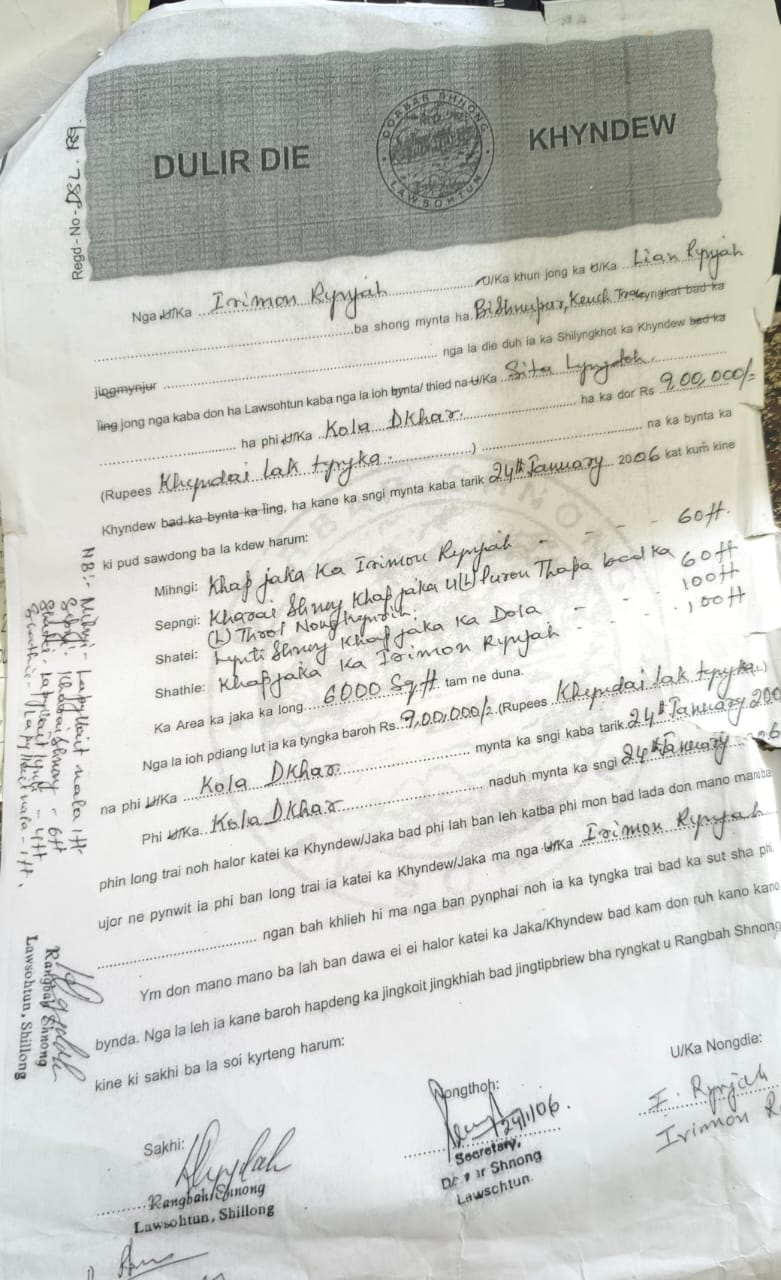 DULIR DIE KHYNDEW
DORBAR SHNONG
LAWSOHTUN
Regd-No-
Nga U/Ka Irimon Rynjah U/Ka khun jong ka U/Ka Lian Rynjah
ba shong mynta ha Bishnupur, Kench Trace ryngkat bad ka
jingmynjur nga la die duh ia ka Shilyngkhot ka Khyndew bad ka
ling jong nga kaba don ha Lawsohtun kaba nga la ioh bynta/ thied na U/Ka Sita Lyngdoh
ha phi U/Ka Kola Dkhar ha ka dor Rs 9,00,000/=
(Rupees Khyndai lak tyngka) na ka bynta ka
Khyndew bad ka bynta ka ling, ha kane ka sngi mynta kaba tarik 24th January 2006 kat kum kine
ki pud sawdong ba la kdew harum:
Mihngi: Khap jaka Ka Irimon Rynjah - - - - 60ft.
Sepngi: Kharai Shnong Khap jaka U(L) Puron Thapa bad ka 60ft
(L)
Shatei: Lynti Shnong Khap jaka Ka Dola - - - 100ft
Shathie: Khap jaka Ka Irimon Rynjah - - - 100ft
Ka Area ka jaka ka long 6000 Sq.ft tam ne duna.
Nga la ioh pdiang lut ia ka tyngka baroh Rs. 9,00,000/= (Rupees Khyndai lak tyngka)
na phi U/Ka Kola Dkhar mynta ka sngi kaba tarik 24th January 200
Phi U/Ka Kola Dkhar naduh mynta ka sngi 24th January
phin long trai noh halor katei ka Khyndew/Jaka bad phi lah ban leh katba phi mon bad lada don mano mano ba
ujor ne pynwit ia phi ban long trai ia katei ka Khyndew/Jaka ma nga U/Ka Irimon Rynjah
ngan bah khlieh hi ma nga ban pynphai noh ia ka tyngka trai bad ka sut sha phi.
Ym don mano mano ba lah ban dawa ei ei halor katei ka Jaka/Khyndew bad kam don ruh kano kano
bynda. Nga la leh ia kane baroh hapdeng ka jingkoit jingkhiah bad jingtipbriew bha ryngkat u Rangbah Shnong
kine ki sakhi ba la soi kyrteng harum:
NB:- Mihngi - Lapyllait nala 1ft
Sepngi - Kharai Shnong - 6ft
Shatei - Lapyllait lynti - 4ft
Shathie - Lapyllait nala - 1ft.
Rangbah Shnong
Lawsohtun, Shillong
Sakhi:
Rangbah Shnong
Lawsohtun, Shillong
Nongthoh:
24/1/06.
Secretary,
Shnong
Lawsohtun.
U/Ka Nongdie:
I. Rynjah
Irimon R